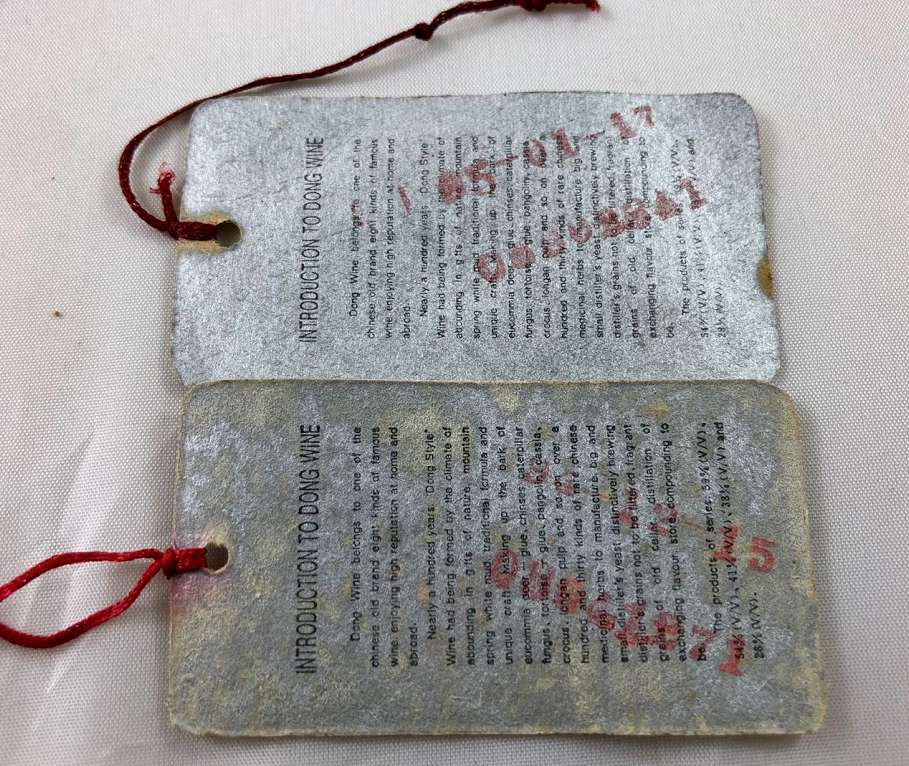 INTRODUCTION TO DONG WINE
Dong Wine belongs to one of the
chinese old brand, eight kinds of famous
wine enjoying high reputation at home and
abroad.
Nearly a hundred years. Dong Style"
Wine had being formed by the climate of
abounding in gifts of nature, mountain
spring white mud traditional formula and
unique craft. Making up the bark of
eucommia deer—glue, chinses caterpillar
fungus, tortoise—glue, pangolin, cassia,
crocus, longan pulp and so on over a
hundred and thirty kinds of rare chinese
medicinal herbs to manufacture big and
small distiller's yeast distinctively brewing
distiller's grains not to be flavored, fragrant
grains of old cellar distillation of
exchanging flavour store, compounding to
be.
The products of series (V/V),
54%(V/V), 41%(V/V), and
28%(V/V).
01-17
INTRODUCTION TO DONG WINE
Dong Wine belongs to one of the
chinese old brand eight kinds of famous
wine enjoying high reputation at home and
abroad.
Nearly a hundred years. Dong Style"
Wine had being formed by the climate of
abounding in gifts of nature, mountain
spring white mud traditional formula and
unique craft. Making up the bark of
eucommia deer—glue, chinses caterpillar
fungus, tortoise—glue, pangolin, cassia,
crocus, longan pulp and so on over a
hundred and thirty kinds of rare chinese
medicinal herbs to manufacture big and
small distiller's yeast distinctively brewing
distiller's grains not to be flavored, fragrant
grains of old cellar distillation of
exchanging flavour store, compounding to
be.
The products of series 59%(V/V),
54%(V/V), 41%(V/V), 38%(V/V) and
28%(V/V).